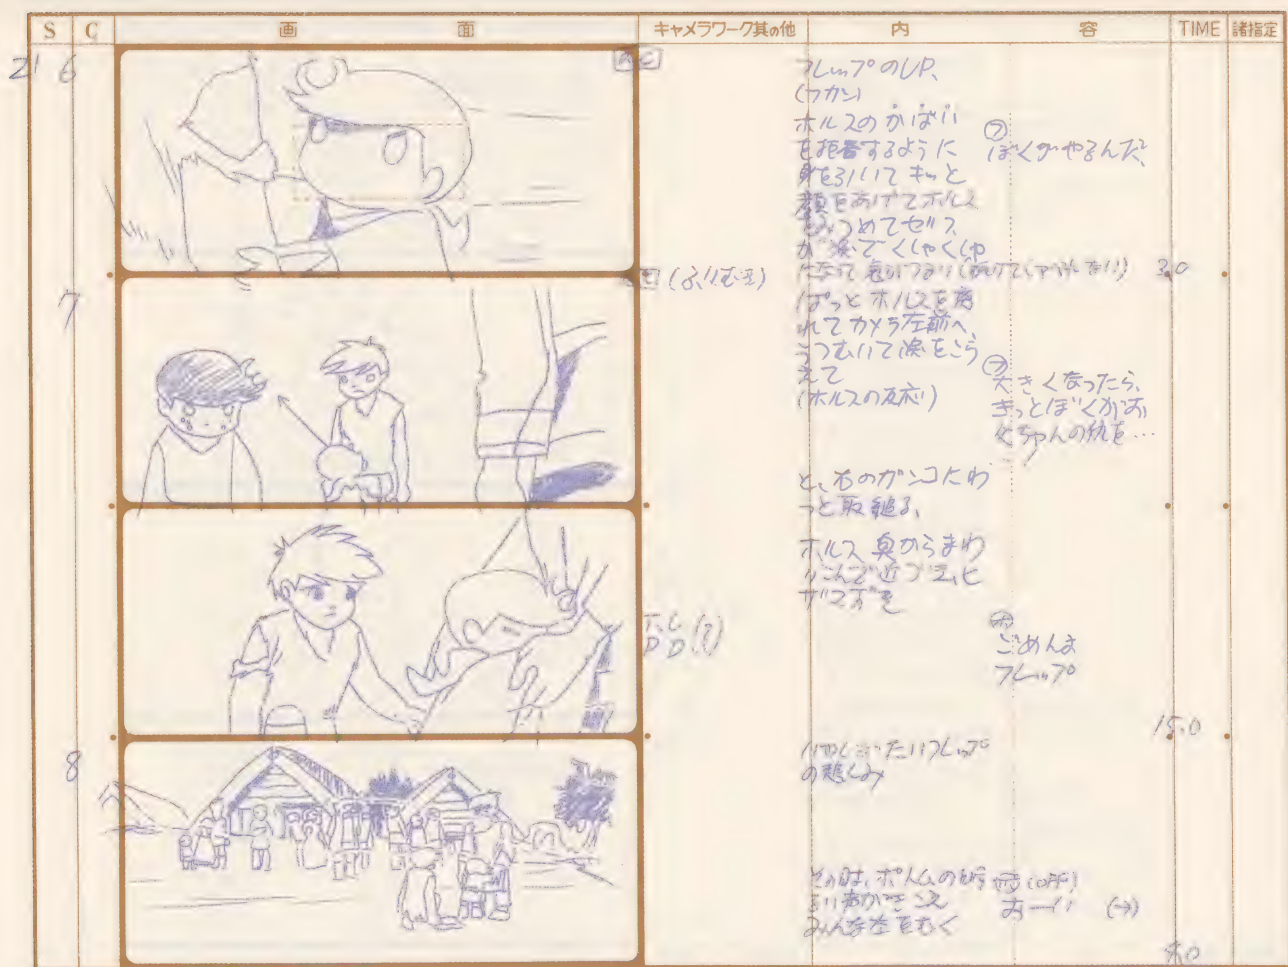 S C 画面 キャメラワーク其の他 内容 TIME 諸指定
21 6
フレップのUP、
(フカン)
ホルスのかばい
を拒否するように
身を引いてキッと
顔をあげてホルス
みつめてセリフ
が涙でくしゃくしゃ
フ
ぼくがやるんだ、
3.0
7
(ふりむき)
ぱっとホルスを離
れてカメラ左前へ、
うつむいて涙をこら
えて
(ホルスの反応)
フ
大きくなったら、
きっとぼくがお
父ちゃんの仇を…
と、右のガンコにわ
っと取縋る、
ホルス 奥からまわ
りこんで近づき、ヒ
ザマずき
ホ
ごめんよ
フレップ
15.0
8
いやしがたいフレップ
の悲しみ
その時、ポトムの
声がきこえ
みんな左をむく
(OFF)
おーい (→)